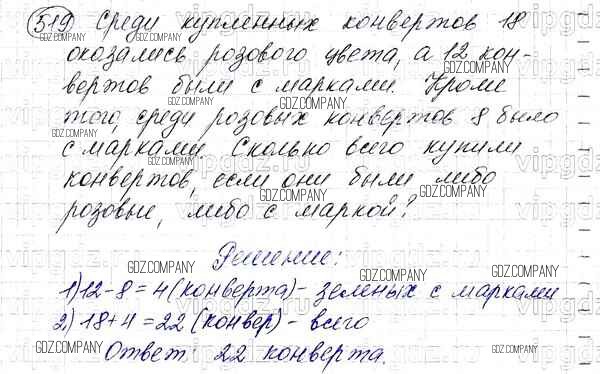 519 Среди купленных конвертов 18
оказались розового цвета, а 12 кон-
вертов были с марками. Кроме
того, среди розовых конвертов 8 было
с марками. Сколько всего купили
конвертов, если они были либо
розовые, либо с маркой?
Решение:
1) 12-8=4 (конверта)- зеленых с марками
2) 18+4=22 (конвер) - всего
Ответ: 22 конверта.